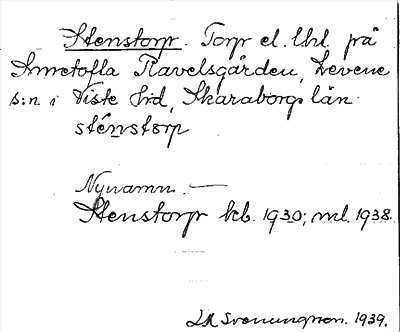 Stenstorp. Torp el. lht. på
Ravelsgården, Levene
s:n i Viste hd, Skaraborgs län.
sténstorp
Nynamn. —
Stenstorp kb. 1930; ml. 1938.
Svenungsson. 1939.